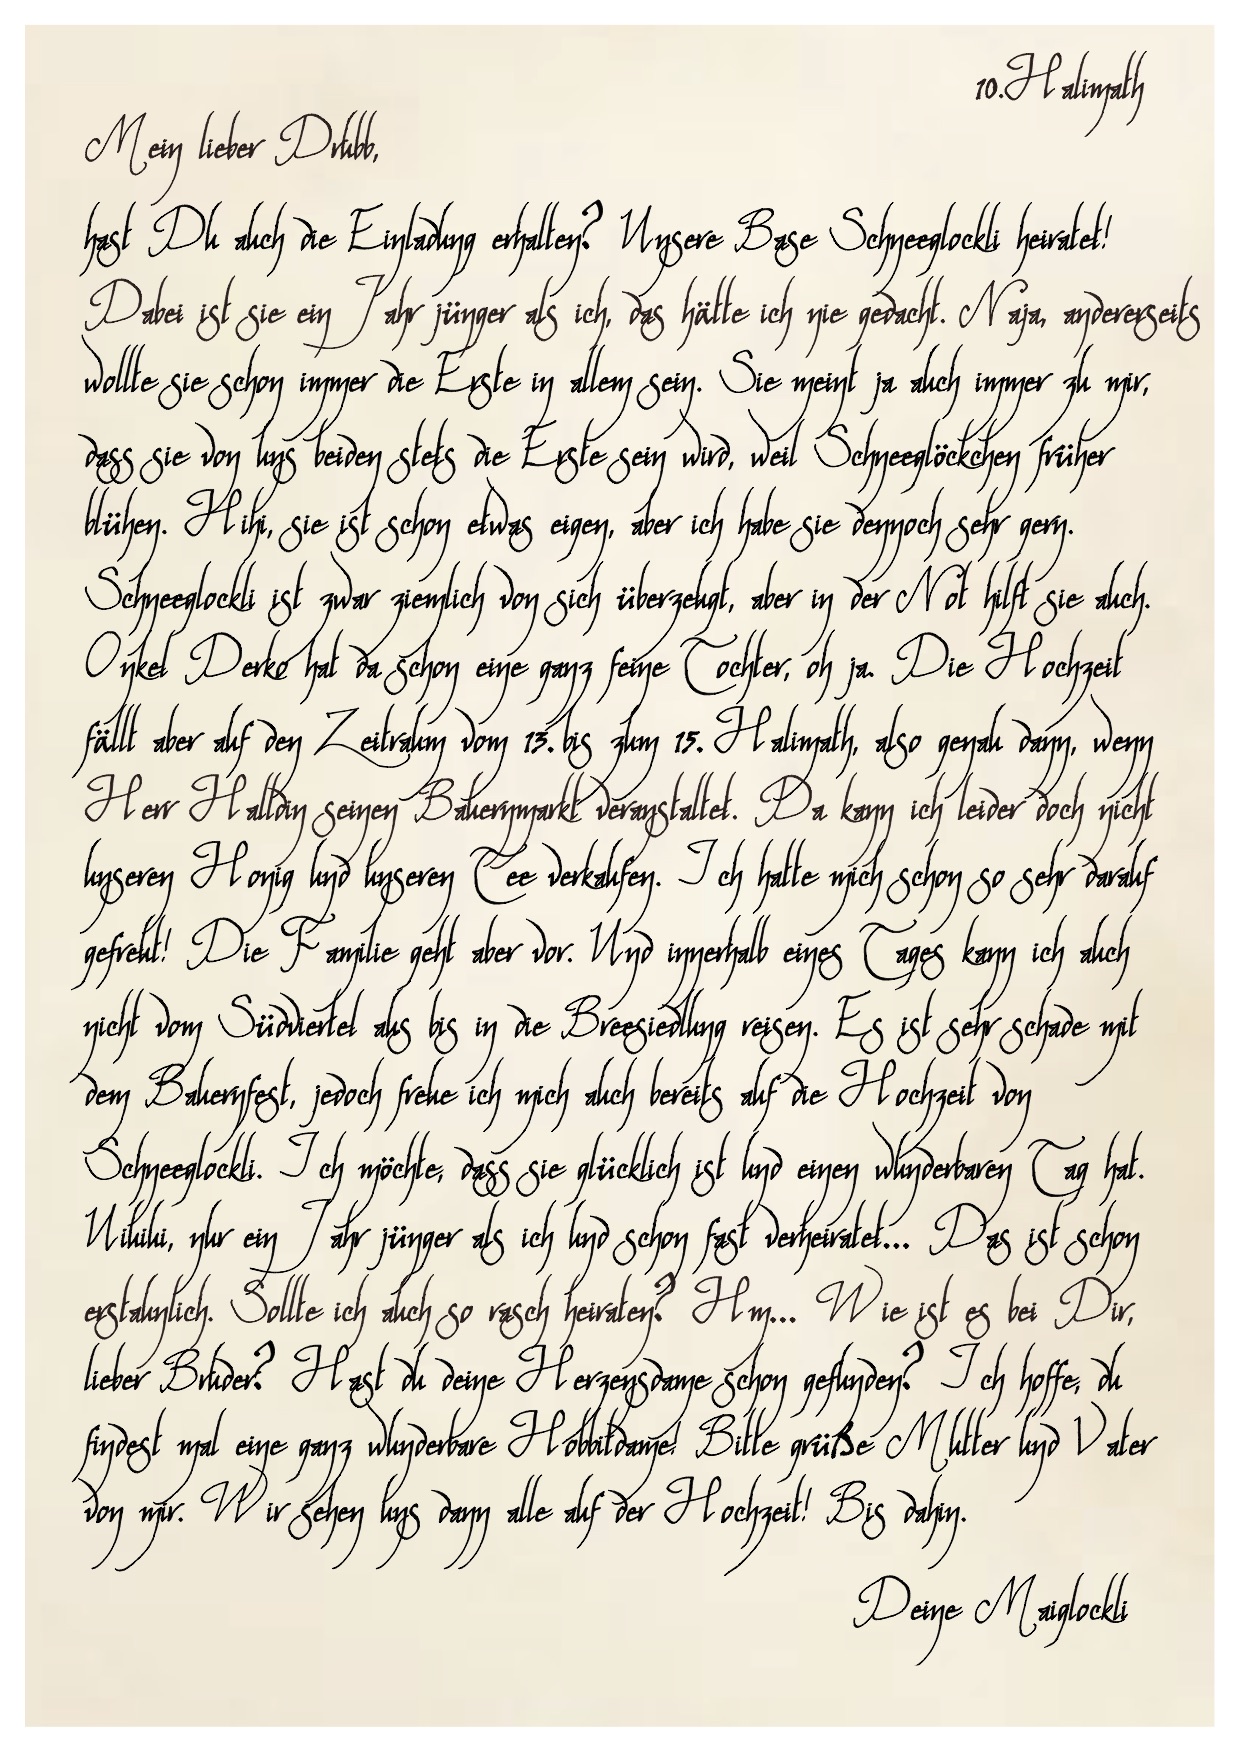 10. Halimath
Mein lieber Drubb,
hast Du auch die Einladung erhalten? Unsere Base Schneeglockli heiratet!
Dabei ist sie ein Jahr jünger als ich, das hätte ich nie gedacht. Naja, andererseits
wollte sie schon immer die Erste in allem sein. Sie meint ja auch immer zu mir,
dass sie von uns beiden stets die Erste sein wird, weil Schneeglöckchen früher
blühen. Hihi, sie ist schon etwas eigen, aber ich habe sie dennoch sehr gern.
Schneeglockli ist zwar ziemlich von sich überzeugt, aber in der Not hilft sie auch.
Onkel Derko hat da schon eine ganz feine Tochter, oh ja. Die Hochzeit
fällt aber auf den Zeitraum vom 13. bis zum 15. Halimath, also genau dann, wenn
Herr Halldin seinen Bauernmarkt veranstaltet. Da kann ich leider doch nicht
unseren Honig und unseren Tee verkaufen. Ich hatte mich schon so sehr darauf
gefreut! Die Familie geht aber vor. Und innerhalb eines Tages kann ich auch
nicht vom Südviertel aus bis in die Breesiedlung reisen. Es ist sehr schade mit
dem Bauernfest, jedoch freue ich mich auch bereits auf die Hochzeit von
Schneeglockli. Ich möchte, dass sie glücklich ist und einen wunderbaren Tag hat.
Uiuiui, nur ein Jahr jünger als ich und schon fast verheiratet... Das ist schon
erstaunlich. Sollte ich auch so rasch heiraten? Hm... Wie ist es bei Dir,
lieber Bruder? Hast du deine Herzensdame schon gefunden? Ich hoffe, du
findest mal eine ganz wunderbare Hobbitdame! Bitte grüße Mutter und Vater
von mir. Wir sehen uns dann alle auf der Hochzeit! Bis dahin.
Deine Maiglockli